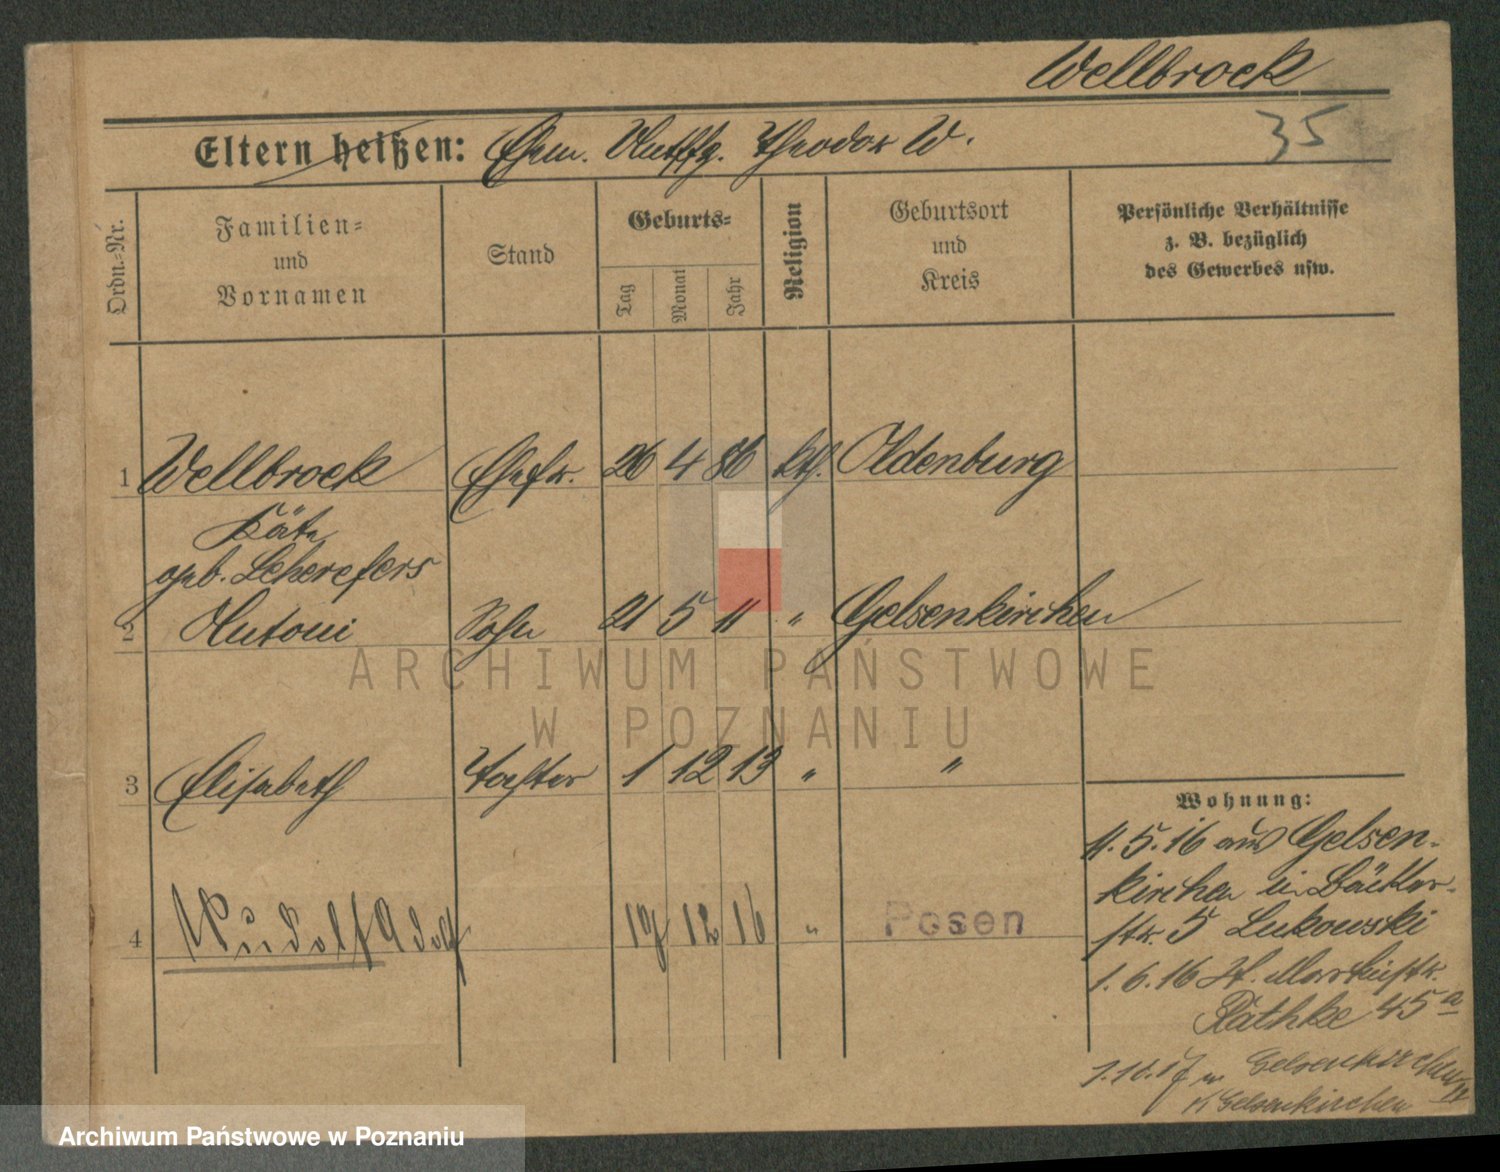 Wellbrock
Eltern heißen: Ehem. Theodor W.
35
Ordn.-Nr.
Familien-
und
Vornamen
Stand
Geburts-
Tag
Monat
Jahr
Religion
Geburtsort
und
Kreis
Persönliche Verhältnisse
z. B. bezüglich
des Gewerbes usw.
1 Wellbrock Ehefr. 26 4 86 kth. Oldenburg
Käte
geb.
2 Antoni Sohn 21 5 11 " Gelsenkirchen
3 Elisabeth Tochter 1 12 13 " "
4 Rudolf Adolf 19 12 16 " Posen
Wohnung:
11.5.16 aus Gelsen-
kirchen in Bäcker-
str. 5 Lukowski
1.6.16 St. Martinstr.
Räthke 45a
1.10.17 n Gelsenkirchen
n Gelsenkirchen
ARCHIWUM PAŃSTWOWE
W POZNANIU
Archiwum Państwowe w Poznaniu